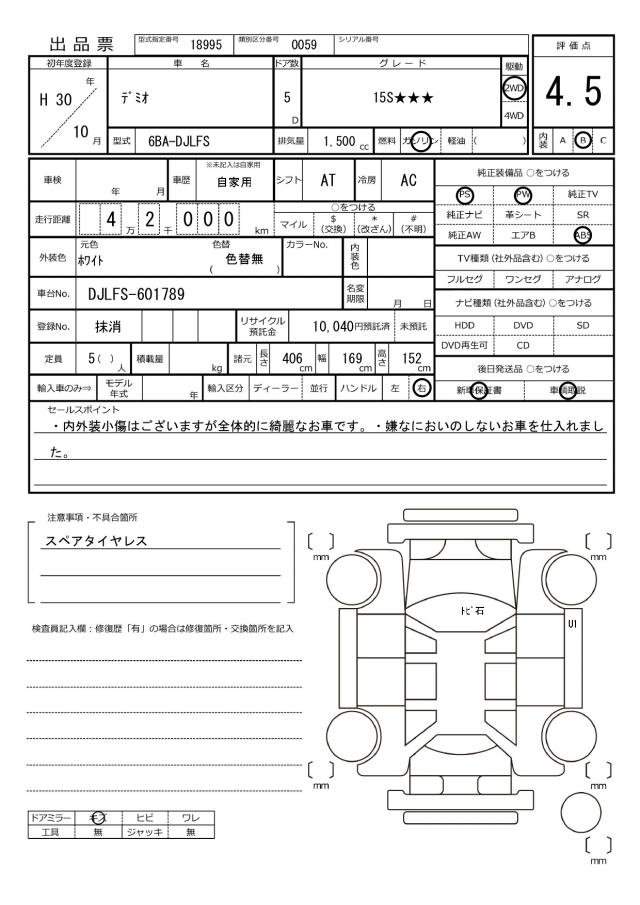 出品票 型式指定番号 18995 類別区分番号 0059 シリアル番号
評価点
初年度登録 車名 ドア数 グレード 駆動
H 30 年 ﾃﾞﾐｵ 5 15S★★★ 2WD 4.5
10 月 D 4WD
型式 6BA-DJLFS 排気量 1.500 cc 燃料 ガソリン 軽油 ( ) 内装 A B C
車検 年 月 車歴 ※未記入は自家用 自家用 シフト AT 冷房 AC 純正装備品 ○をつける
PS PW 純正TV
走行距離 4 万 2 千 0 0 0 km ○をつける
マイル $(交換) *(改ざん) #(不明)
純正ナビ 革シート SR
純正AW エアB ABS
外装色 元色 ﾎﾜｲﾄ 色替 ( 色替無 ) カラーNo. 内装色
TV種類(社外品含む) ○をつける
フルセグ ワンセグ アナログ
車台No. DJLFS-601789 名変期限 月 日
ナビ種類(社外品含む) ○をつける
登録No. 抹消 リサイクル預託金 10,040円預託済 未預託
HDD DVD SD
DVD再生可 CD
定員 5( )人 積載量 kg 諸元 長さ 406 cm 幅 169 cm 高さ 152 cm
後日発送品 ○をつける
輸入車のみ⇒ モデル年式 年 輸入区分 ディーラー 並行 ハンドル 左 右
新車保証書 車輌取説
セールスポイント
・内外装小傷はございますが全体的に綺麗なお車です。・嫌なにおいのしないお車を仕入れまし
た。
注意事項・不具合箇所
スペアタイヤレス
検査員記入欄：修復歴「有」の場合は修復箇所・交換箇所を記入
〔 〕 mm
〔 〕 mm
ﾄﾋﾞ石
U1
〔 〕 mm
〔 〕 mm
〔 〕 mm
ドアミラー キズ ヒビ ワレ
工具 無 ジャッキ 無